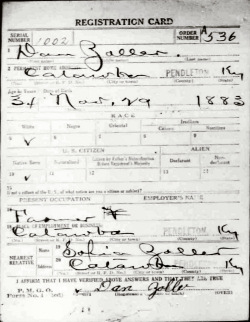 REGISTRATION CARD
SERIAL NUMBER 1002 ORDER NUMBER A 536
1 Dan Zoller
2 PERMANENT HOME ADDRESS
Catawba PENDLETON Ky
Age in Years Date of Birth
34 Nov. 29 1883
RACE
White Negro Oriental Indian
Citizen Noncitizen
✓
U. S. CITIZEN ALIEN
Native Born Naturalized Citizen by Father's Naturalization Before Registrant's Majority Declarant Non-declarant
✓
15 If not a citizen of the U. S., of what nation are you a citizen or subject?
PRESENT OCCUPATION EMPLOYER'S NAME
PLACE OF EMPLOYMENT OR BUSINESS
Catawba PENDLETON Ky
NEAREST RELATIVE Name Zoller
Address Catawba Ky
I AFFIRM THAT I HAVE VERIFIED ABOVE ANSWERS AND THAT THEY ARE TRUE
P. M. G. O.
Form No. 1 (Red) Dan Zoller